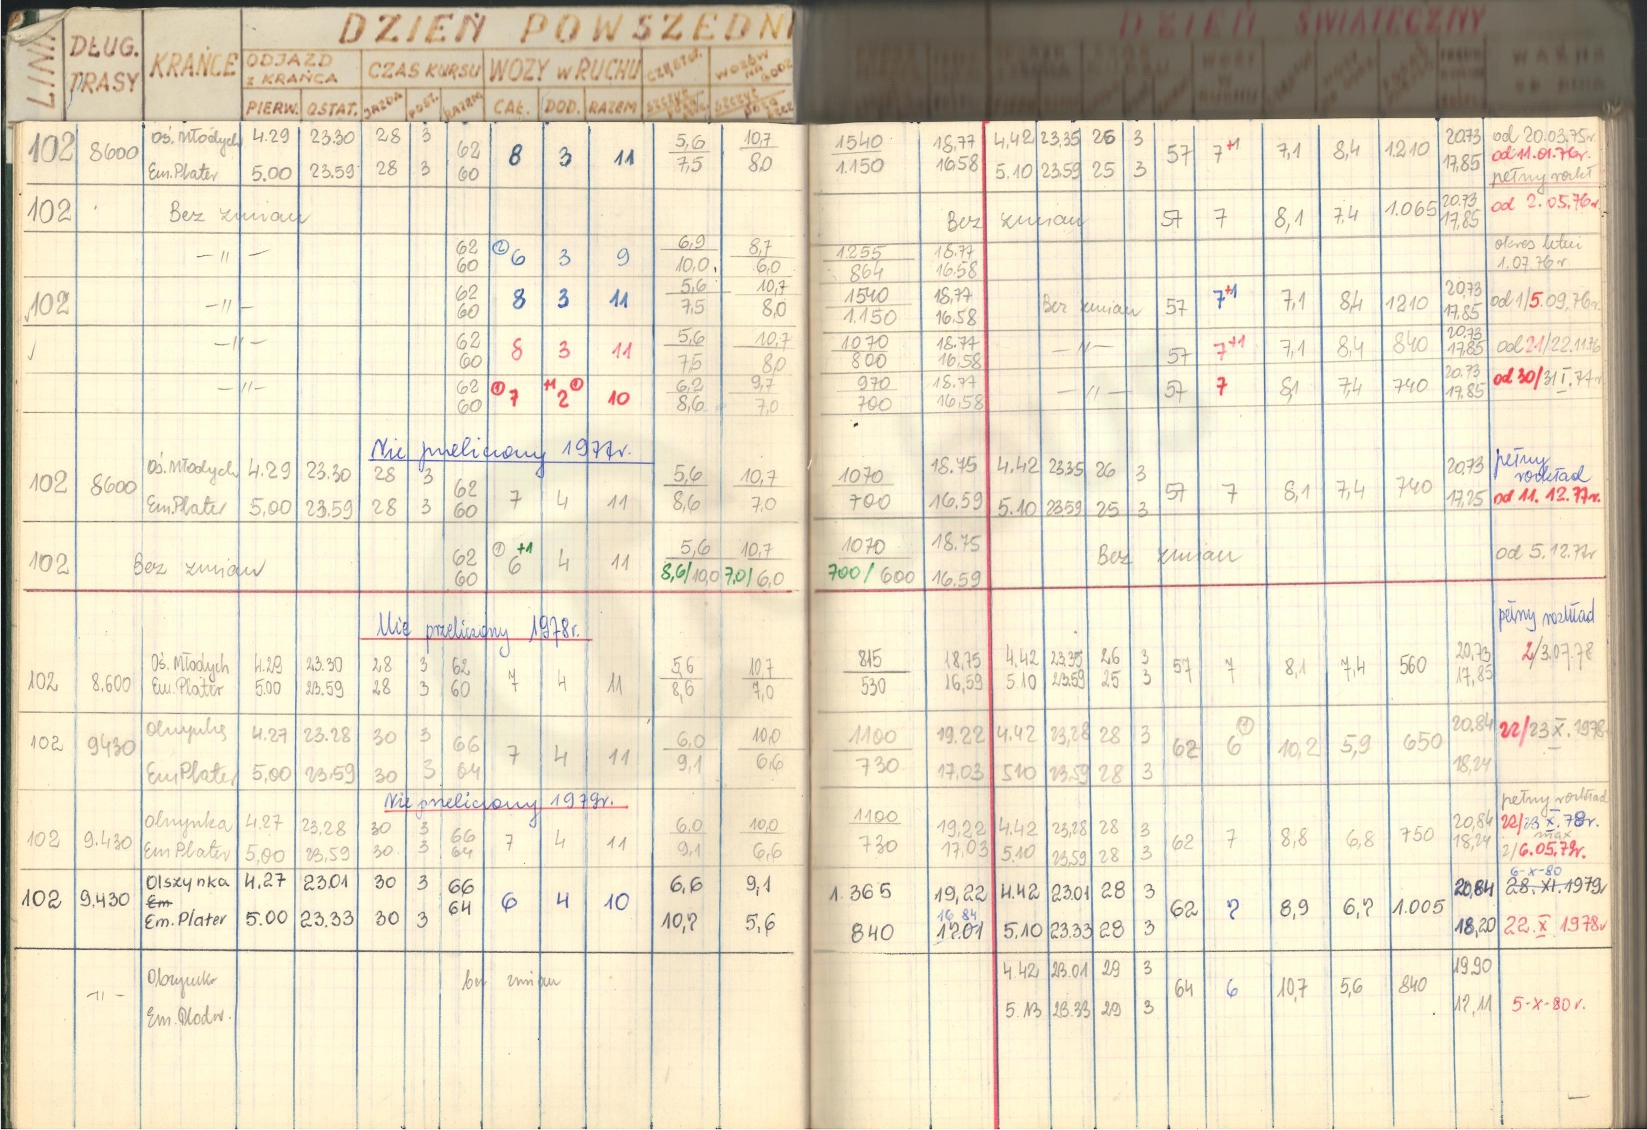 DZIEŃ POWSZEDNI
DZIEŃ ŚWIĄTECZNY
LINIA DŁUG. TRASY KRAŃCE ODJAZD z KRAŃCA CZAS KURSU WOZY w RUCHU
PIERW. OSTAT. JAZDA POST. RAZEM CAŁ. DOD. RAZEM
102 8600 Oś. Młodych 4.29 23.30 28 3 62 8 3 11 5,6 10,7 1540 18,77 4.42 23,35 26 3 57 7+1 7,1 8,4 1210 20,73 od 20.03.75r.
Em.Plater 5.00 23.59 28 3 60 7,5 8,0 1.150 16.58 5.10 23.59 25 3 17,85 od 11.01.76r.
pełny rozkł
102 Bez zmian Bez zmian 57 7 8,1 7,4 1.065 20.73 od 2.05.76r.
17,85
—〃— 62 ② 6 3 9 6,9 8,7 1255 18.77 okres letni
60 10,0 6,0 864 16.58 1.07.76r
102 —〃— 62 8 3 11 5,6 10,7 1540 18,77 Bez zmian 57 7+1 7,1 8,4 1210 20,73 od 1/5.09.76r.
60 7,5 8,0 1.150 16.58 17,85
—〃— 62 8 3 11 5,6 10,7 1070 18.77 —〃— 57 7+1 7,1 8,4 840 20,73 od 21/22.11.76
60 7,5 8,0 800 16,58 17,85
—〃— 62 ① 7 +1 2 ① 10 6,2 9,7 970 18.77 —〃— 57 7 8,1 7,4 740 20.73 od 30/31 I.77r
60 8,6 7,0 700 16,58 17,85
Nie przeliczony 1977r.
102 8600 Oś. Młodych 4.29 23.30 28 3 62 7 4 11 5,6 10,7 1070 18.75 4.42 23.35 26 3 57 7 8,1 7,4 740 20,73 pełny rozkład
Em.Plater 5,00 23.59 28 3 60 8,6 7,0 700 16,59 5.10 23.59 25 3 17,25 od 11.12.77r.
102 Bez zmian 62 ① 6 +1 4 11 5,6 10,7 1070 18.75 Bez zmian od 5.12.77r
60 8,6/10,0 7,0/6,0 700/600 16.59
Nie przeliczony 1978r.
pełny rozkład
102 8.600 Oś. Młodych 4.29 23.30 28 3 62 7 4 11 5,6 10,7 815 18,75 4.42 23.35 26 3 57 7 8,1 7,4 560 20,73 2/3.07.78
Em.Plater 5.00 23.59 28 3 60 8,6 7,0 530 16,59 5.10 23.59 25 3 17,85
102 9430 Olszynka 4.27 23.28 30 3 66 7 4 11 6,0 10,0 1100 19.22 4.42 23,28 28 3 62 6 10,2 5,9 650 20.84 22/23 X. 1978r
Em.Plater 5,00 23.59 30 3 64 9,1 6,6 730 17,03 5.10 23.59 28 3 18,24
Nie przeliczony 1979r.
pełny rozkład
102 9.430 Olszynka 4.27 23,28 30 3 66 7 4 11 6,0 10,0 1100 19,22 4.42 23,28 28 3 62 7 8,8 6,8 750 20,84 22/23 X. 78r.
Em Plater 5,00 23,59 30 3 64 9,1 6,6 730 17,03 5.10 23,59 28 3 18,24 2/6.05.79r.
6-X-80
102 9.430 Olszynka 4.27 23.01 30 3 66 6 4 10 6,6 9,1 1.365 19,22 4.42 23.01 28 3 62 7 8,9 6,7 1.005 20,84 28.XI.1979r
Em
Em.Plater 5.00 23.33 30 3 64 10,7 5,6 840 16 84 17.01 5.10 23.33 28 3 18,20 22.X 1978r
—〃— Olszynka bez zmian 4.42 23.01 29 3 64 6 10,7 5,6 840 19.90
5.13 23.33 29 3 17,11 5-X-80r.